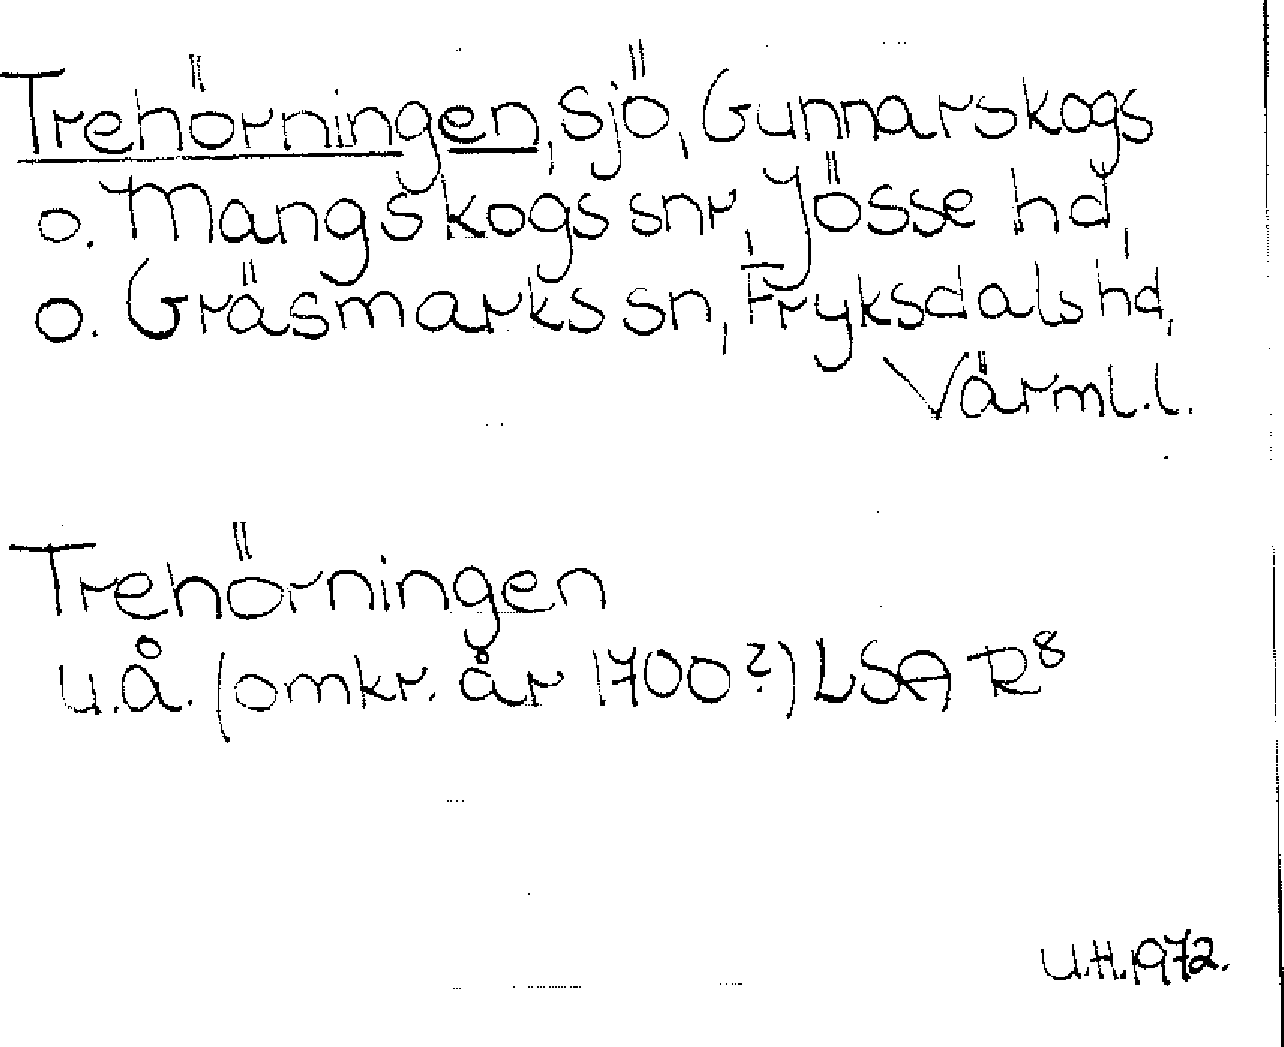 Trehörningen, sjö, Gunnarskogs
o. Mangskogs snr, Jösse hd,
o. Gräsmarks sn, Fryksdals hd,
Värml. l.
Trehörningen
u.å. (omkr. år 1700?) LSA R8
U.H. 1972.